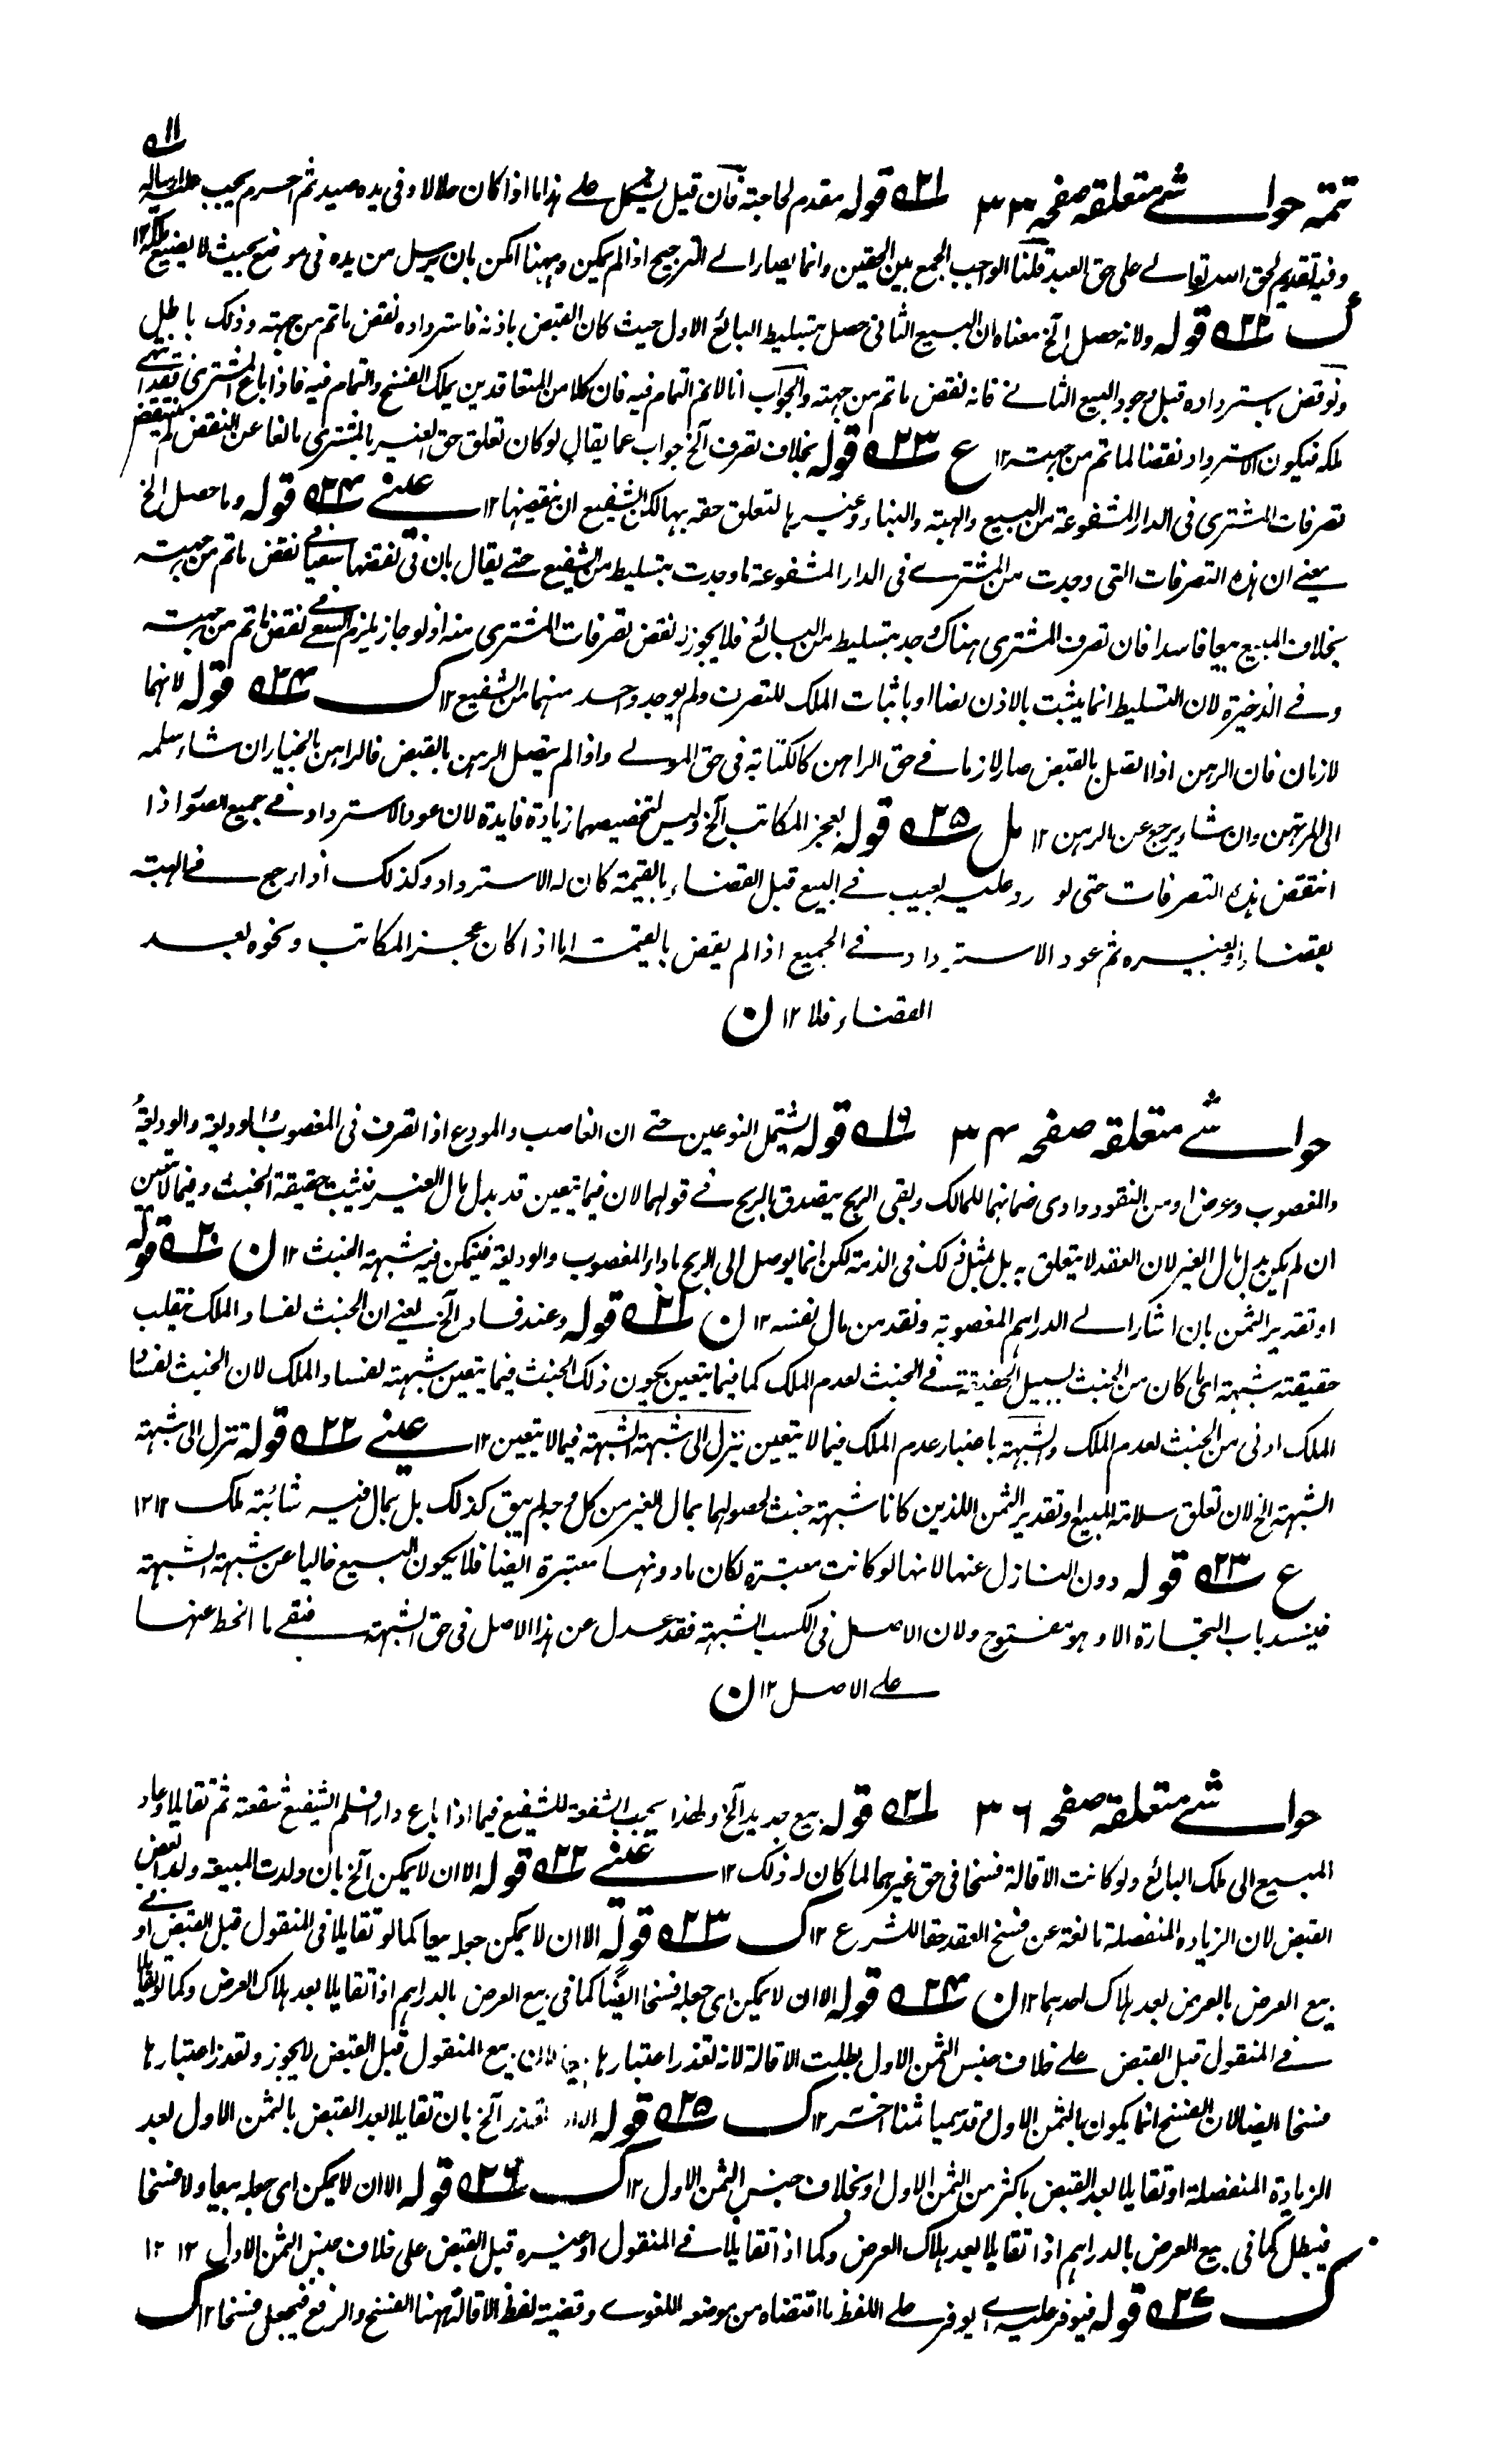 ۱۱ ۵
تتمہ حواشی متعلقہ صفحہ ۳۳ ۲۱ قولہ مقدم لحاجتہ فان قیل یشکل علی ہذا ما اذا کان حلالا و فی یدہ صید ثم احرم یجب علیہ ارسالہ
و فیہ تقدیم لحق اللہ تعالے علی حق العبد قلنا الواجب الجمع بین الحقین وانما یصار الے الترجیح اذا لم یمکن وہہنا امکن بان یرسل من یدہ فی موضع بحیث لا یضیع ملکہ ۱۲
ک ۲۲ قولہ ولانہ حصل الخ معناہ ان البیع الثانی حصل بتسلیط البائع الاول حیث کان القبض باذنہ فاستردادہ نقض ما تم من جہتہ وذلک باطل
ونوقض باستردادہ قبل وجود البیع الثانے فانہ نقض ما تم من جہتہ والجواب انا لا نم التمام فیہ فان کلا من المتعاقدین یملک الفسخ والتمام فیہ فاذا باع المشتری فقد انتہے
ملکہ فیکون الاسترداد نقضا لما تم من جہتہ ۱۲ ع ۲۳ قولہ بخلاف تصرف الخ جواب عما یقال لو کان تعلق حق الغیر بالمشتری مانعا عن النقض لم ینتقض
تصرفات المشتری فی الدار المشفوعۃ من البیع والہبۃ والبناء وغیرہا لتعلق حقہ بہا لکن الشفیع ان ینقضہا ۱۲ عینے ۲۴ قولہ وما حصل الخ
یعنے ان ہذہ التصرفات التی وجدت من المشترے فی الدار المشفوعۃ ما وجدت بتسلیط من الشفیع حتے یقال بان فی نقضہا سعیا فے نقض ما تم من جہتہ
بخلاف المبیع بیعا فاسدا فان تصرف المشتری ہناک وجد بتسلیط من البائع فلا یجوز لہ نقض تصرفات المشتری منہ اذ لو جاز یلزم السعے فے نقض ما تم من جہتہ
وفے الذخیرۃ لان التسلیط انما یثبت بالاذن نصا او باثبات الملک للتصرف ولم یوجد واحد منہما من الشفیع ۱۲ ک ۲۴ قولہ لانہما
لازمان فان الرہن اذا اتصل بالقبض صار لازما فے حق الراہن کالکتابۃ فی حق المولے واذا لم یتصل الرہن بالقبض فالراہن بالخیار ان شاء سلمہ
الی المرتہن وان شاء یرجع عن الرہن ۱۲ مل ۲۵ قولہ بعجز المکاتب الخ ولیس لتخصیصہما زیادۃ فایدۃ لان عود الاسترداد فے جمیع الصور اذا
انتقض ہذہ التصرفات حتی لو رد علیہ بعیب فے البیع قبل القضاء بالقیمۃ کان لہ الاسترداد وکذلک اذا رجع فے الہبۃ
بقضاء او بغیرہ ثم عود الاسترداد فے الجمیع اذا لم یقض بالقیمۃ اما اذا کان عجز المکاتب ونحوہ بعد
القضاء فلا ۱۲ ن
حواشے متعلقہ صفحہ ۳۴ ۱۹ قولہ یشتمل النوعین حتے ان الغاصب والمودع اذا تصرف فی المغصوب والودیعۃ والودیعۃ
والمغصوب وعرض او من النقود وادی ضمانہما للمالک وبقی الربح یتصدق بالربح فے قولہما لان فیما یتعین قد بدل بال الغیر فیثبت حقیقۃ الخبث وفیما لا یتعین
ان لم یکن بدل مال الغیر لان العقد لا یتعلق بہ بل بمثل ذلک فی الذمۃ لکن انما یوصل الی الربح باداء المغصوب والودیعۃ فیمکن فیہ شبہۃ الخبث ۱۲ ن ۲۰ قولہ
او تقدیر الثمن بان اشار الے الدراہم المغصوبۃ ونقد من مال نفسہ ۱۲ ن ۲۱ قولہ وعند فساد الخ یعنے ان الخبث لفساد الملک ینقلب
حقیقتہ شبہۃ ای ما کان من الخبث بسبیل الحقیقۃ فے الخبث لعدم الملک کما فیما یتعین یکون ذلک الخبث فیما یتعین شبہۃ لفساد الملک لان الخبث لفساد
الملک ادنی من الخبث لعدم الملک والشبہۃ باعتبار عدم الملک فیما لا یتعین ینزل الی شبہۃ الشبہۃ فیما لا یتعین ۱۲ عینے ۲۲ قولہ تنزل الی شبہۃ
الشبہۃ الخ لان تعلق سلامۃ المبیع او تقدیر الثمن اللذین کانا شبہۃ خبث لحصولہما بمال الغیر من کل وجہ لم یبق کذلک بل بمال فیہ شائبۃ ملک ۱۲ ۱۲
ع ۲۳ قولہ دون النازل عنہا لانہا لو کانت معتبرۃ لکان ما دونہا معتبرۃ ایضا فلا یکون البیع خالیا عن شبہۃ الشبہۃ
فینسد باب التجارۃ الا وہو مفتوح ولان الاصل فی الکسب الشبہۃ فقد عدل عن ہذا الاصل فی حق الشبہۃ فبقے ما انحط عنہا
علے الاصل ۱۲ ن
حواشے متعلقہ صفحہ ۳۶ ۲۱ قولہ بیع جدید الخ ولہذا یجب الشفعۃ للشفیع فیما اذا باع دار فسلم الشفیع شفعتہ ثم تقایلا وعاد
المبیع الی ملک البائع ولو کانت الاقالۃ فسخا فی حق غیرہما لما کان لہ ذلک ۱۲ عینے ۲۲ قولہ الا ان لا یمکن الخ بان ولدت المبیعۃ ولدا بعض
القبض لان الزیادہ المنفصلۃ مانعۃ عن فسخ العقد حقا للشرع ۱۲ ک ۲۳ قولہ الا ان لا یمکن جعلہ بیعا کما لو تقایلا فی المنقول قبل القبض او فے
بیع العرض بالعرض بعد ہلاک احدہما ۱۲ ن ۲۴ قولہ الا ان لا یمکن ای جعلہ فسخا ایضًا کما فی بیع العرض بالدراہم اذا تقایلا بعد ہلاک العرض وکما لو تقایلا
فے المنقول قبل القبض علے خلاف جنس الثمن الاول بطلت الاقالۃ لانہ تعذر اعتبارہا بیعا لان بیع المنقول قبل القبض لا یجوز وتعذر اعتبارہا
فسخا ایضا لان الفسخ انما یکون بالثمن الاول وقد سمیا ثمنا اخر ۱۲ ک ۲۵ قولہ تعذر الخ بان تقایلا بعد القبض بالثمن الاول بعد
الزیادۃ المنفصلۃ او تقایلا بعد القبض باکثر من الثمن الاول او بخلاف جنس الثمن الاول ۱۲ ک ۲۶ قولہ الا ان لا یمکن ای جعلہ بیعا ولا فسخا
فیبطل کما فی بیع العرض بالدراہم اذا تقایلا بعد ہلاک العرض وکما اذا تقایلا فے المنقول او غیرہ قبل القبض علی خلاف جنس الثمن الاول ۱۲ ۱۲
ک ۲۷ قولہ فیوفر علیہ اے یوفر علے اللفظ ما اقتضاہ من موضعہ اللغوے وقضیۃ لفظ الاقالۃ ہہنا الفسخ والرفع فیجعل فسخا ۱۲ ک